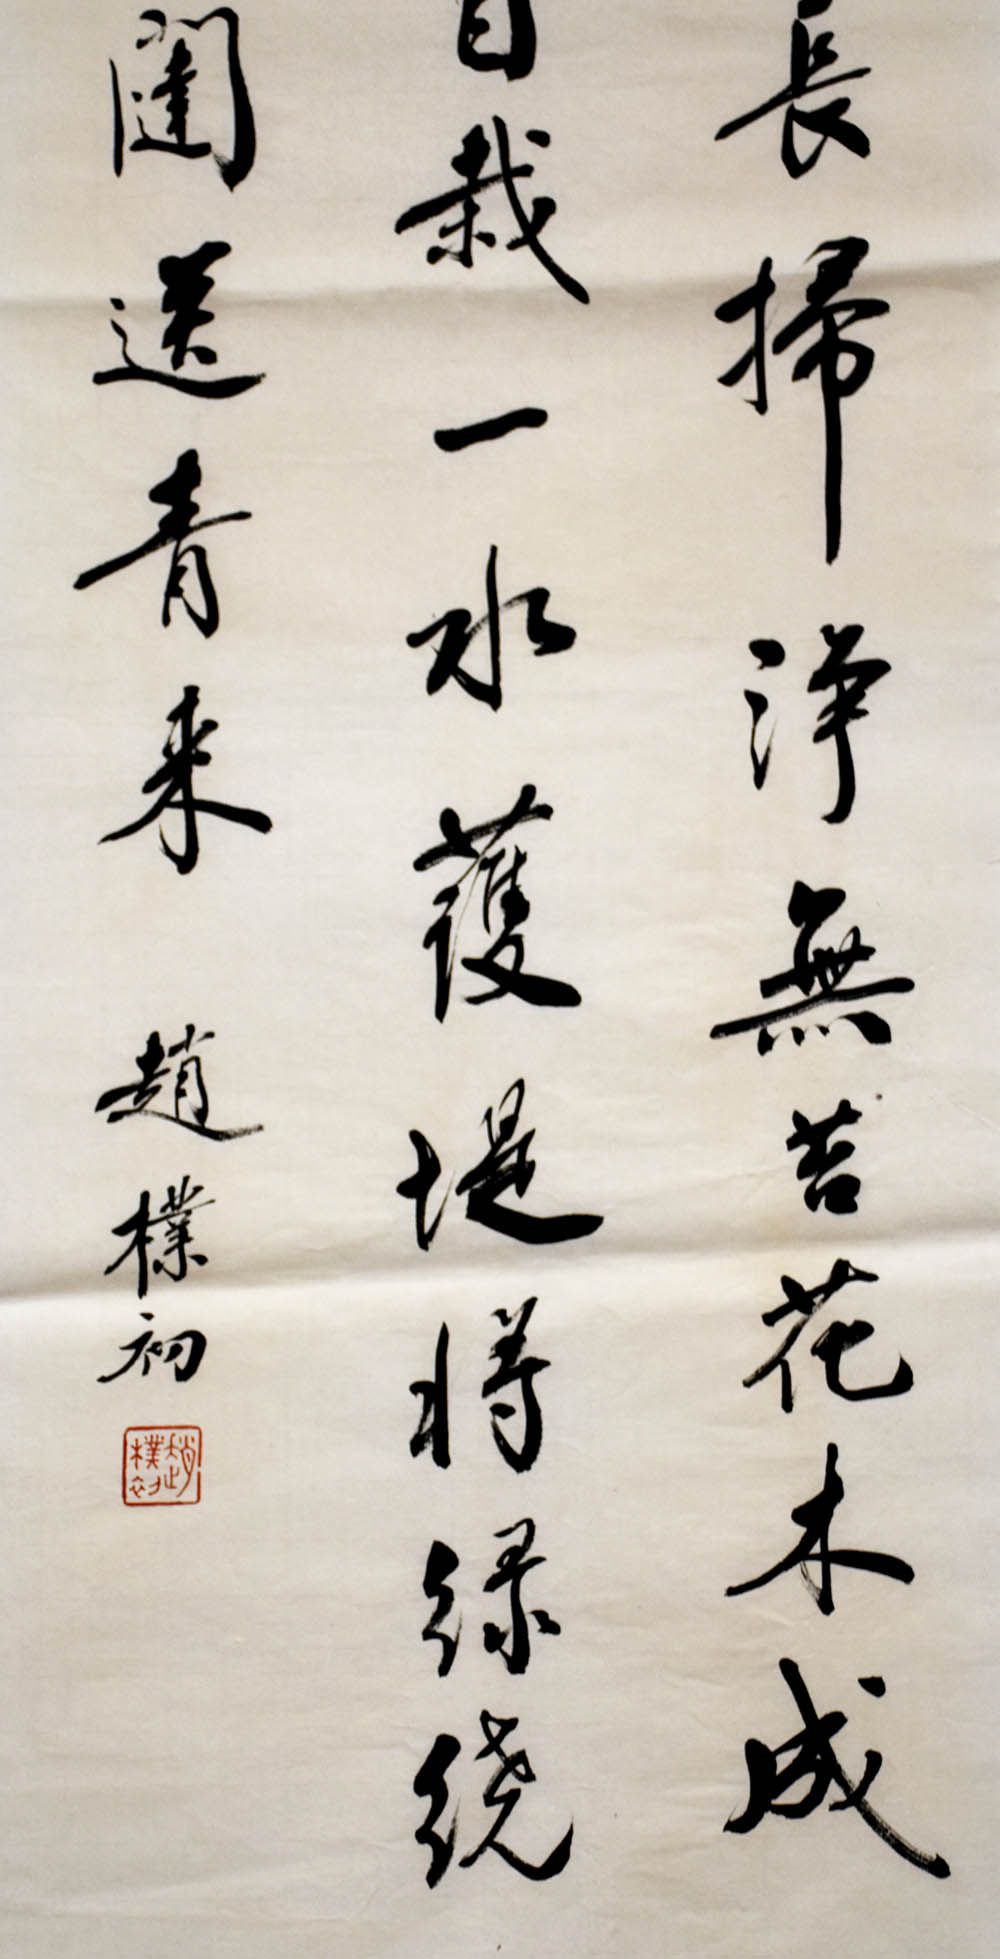 長掃淨無苔花木成
自栽一水護堤將绿绕
闥送青来
趙樸初
趙樸初